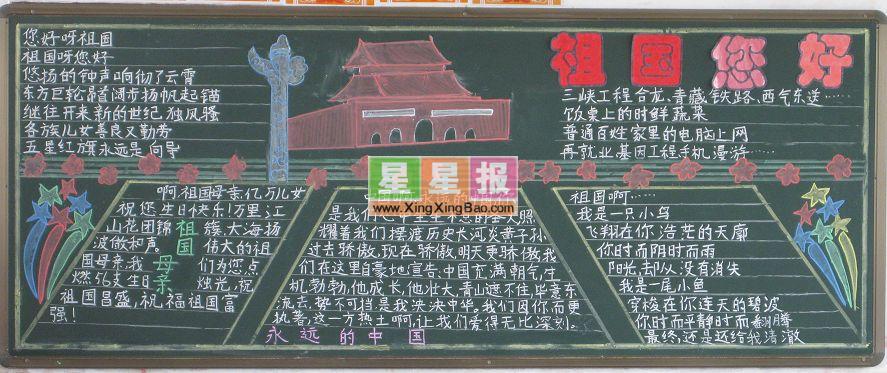 您好呀祖国
祖国呀您好
悠扬的钟声响彻了云霄
东方巨轮昂首阔步扬帆起锚
继往开来新的世纪独风骚
各族儿女善良又勤劳
五星红旗永远是向导
祖国您好
三峡工程合龙、青藏铁路、西气东送……
饮桌上的时鲜蔬菜
普通百姓家里的电脑上网
再就业、基因工程手机漫游……
星星报
www.XingXingBao.com
啊,祖国母亲,亿万儿女
祝您生日快乐!万里江
山花团锦 族,大海扬
波做和声。 伟大的祖
国母亲我 们为您点
燃56支生日 烛光,祝
祖国昌盛,祝福祖国富
强!
祖国母亲
是我们心中
耀着我们摆渡历史大河炎黄子孙
过去骄傲,现在骄傲,明天更骄傲我
们在这里自豪地宣告,中国充满朝气,生
机勃勃,他成长,他壮大,青山遮不住,毕竟东
流去,势不可挡是我泱泱中华。我们因你而更
执著,这一方热土啊,让我们爱得无比深刻。
永远的中国
祖国啊……
我是一只小鸟
飞翔在你浩茫的天廓
你时而阴时而雨
阳光,却从没有消失
我是一尾小鱼
穿梭在你连天的碧波
你时而平静时而翻腾
最终,还是还给我清澈